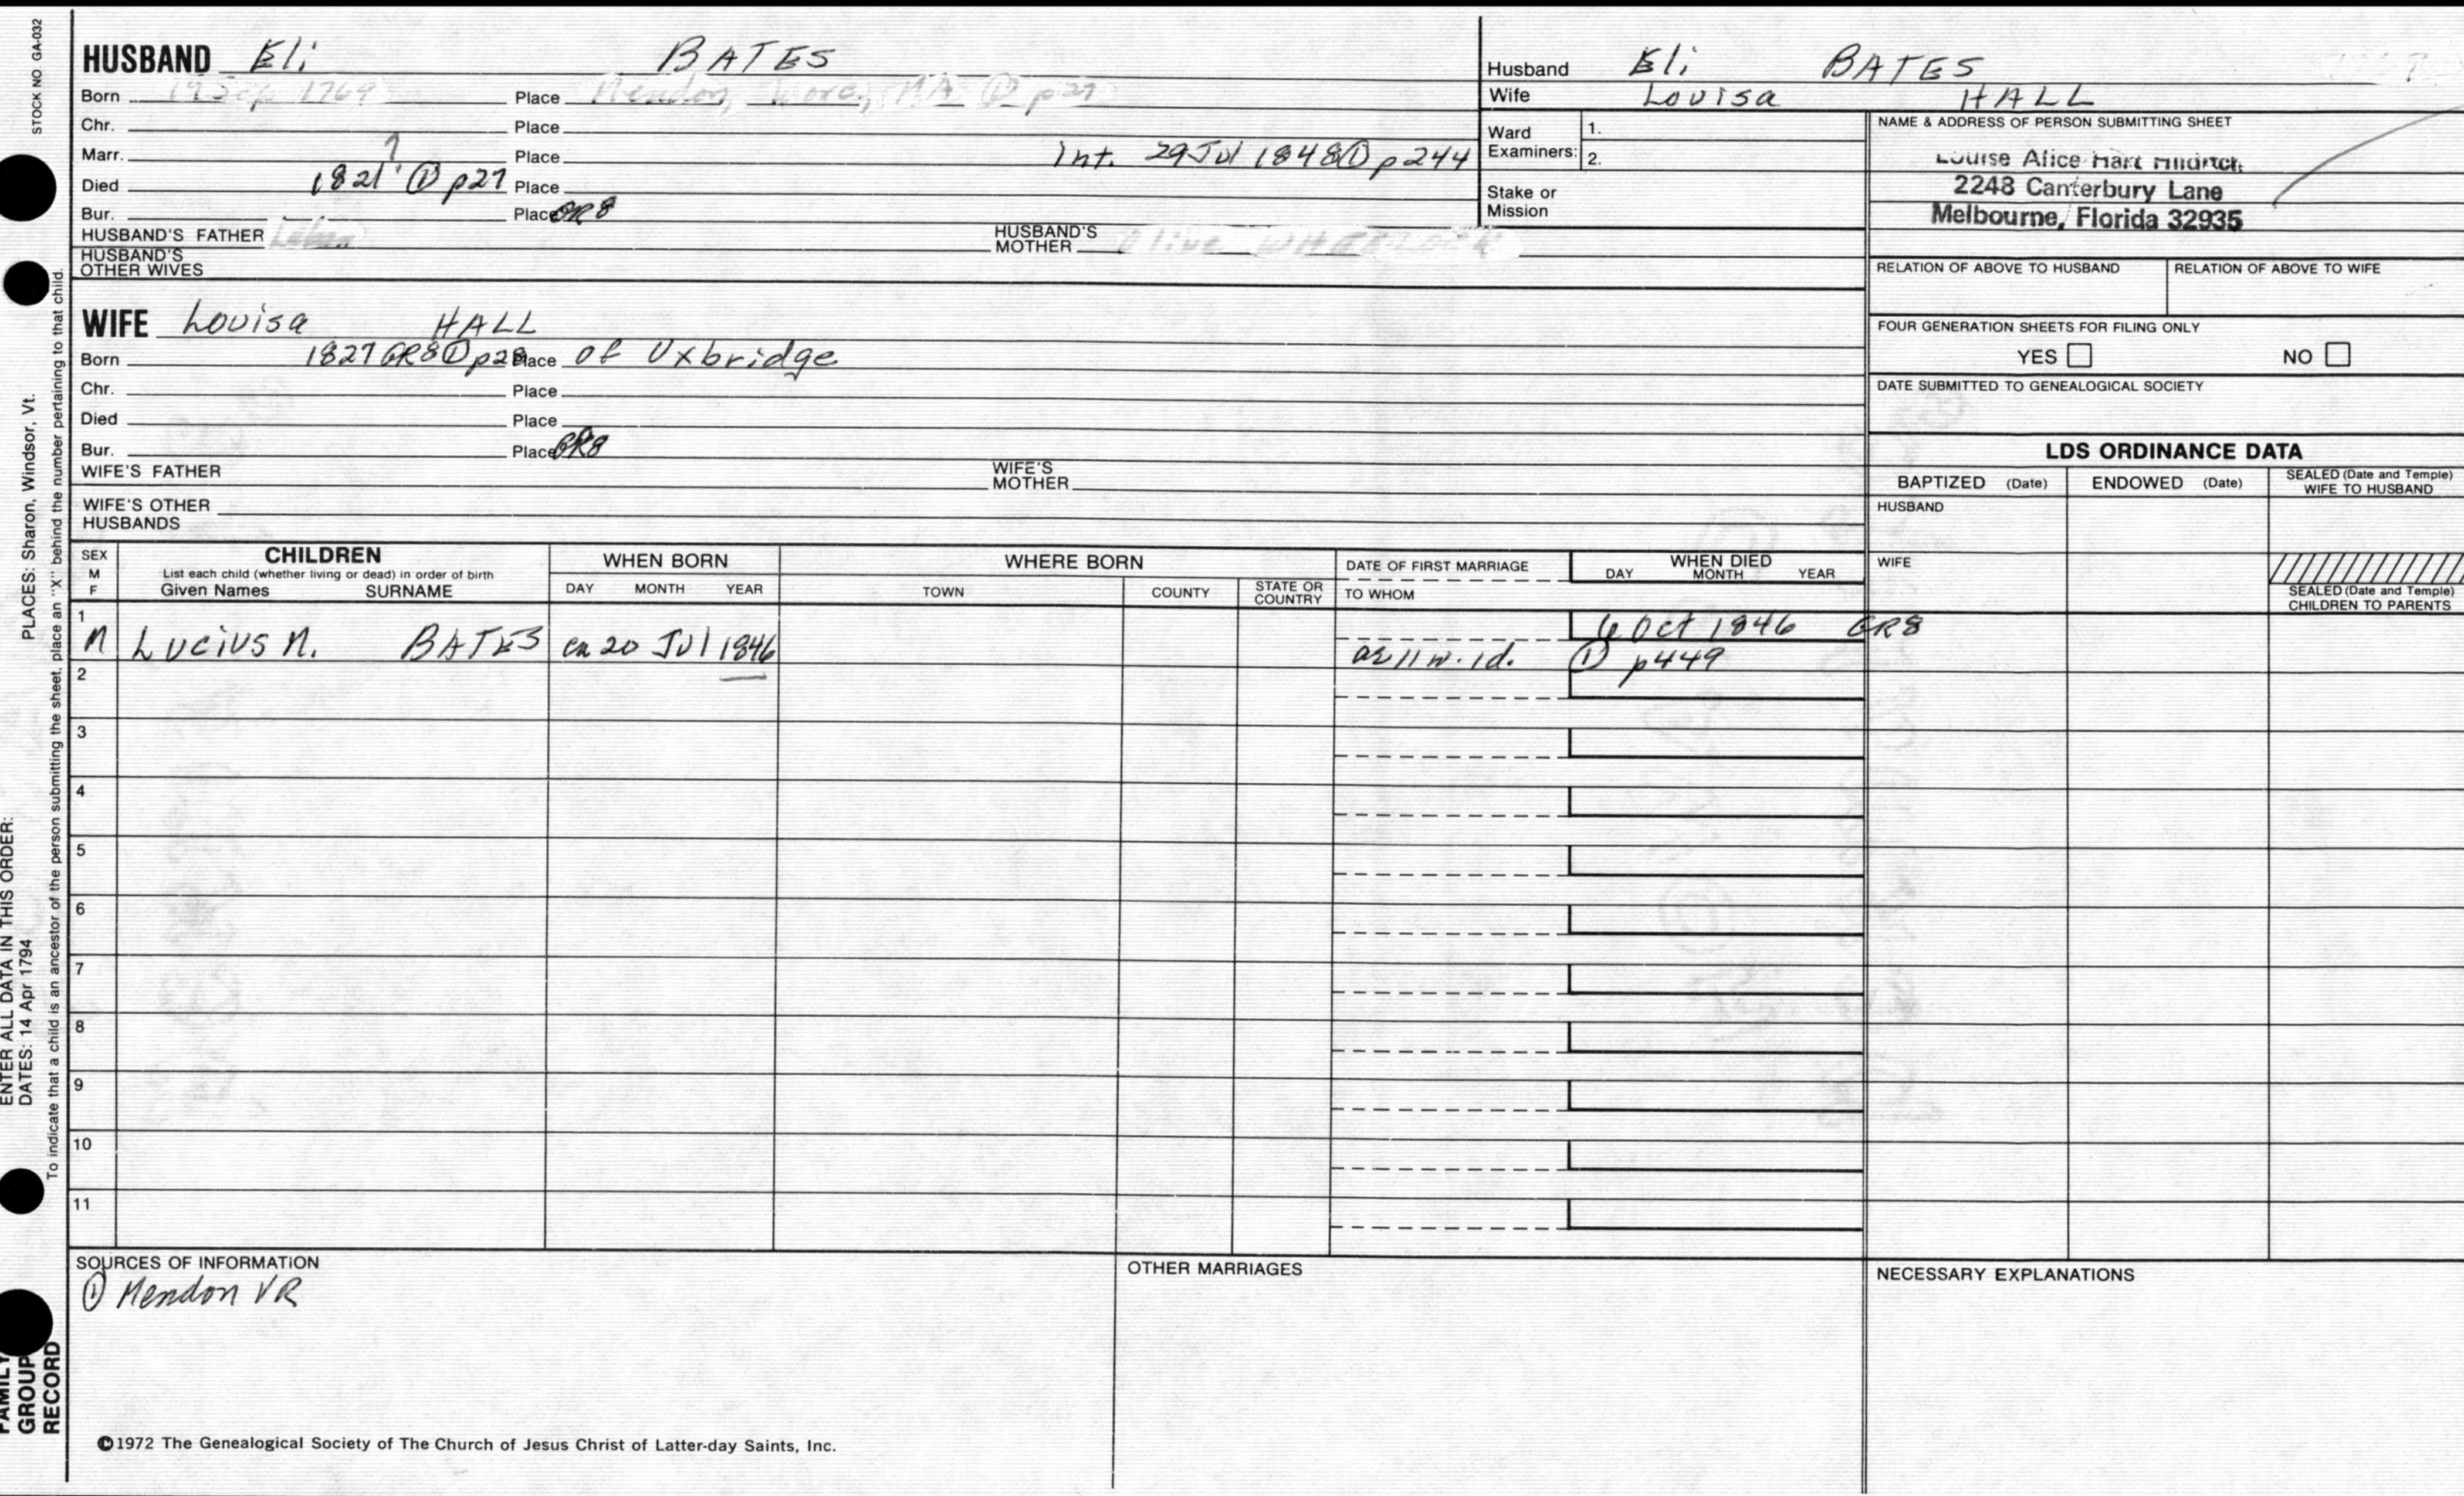 STOCK NO. GA-032
HUSBAND Eli BATES
Born 19 Sep 1769 Place Mendon, Worc., MA ① p27
Chr. Place
Marr. Place Int. 29 Jul 1848 ① p244
Died 1821 ① p27 Place
Bur. Place GR8
HUSBAND'S FATHER Laban HUSBAND'S MOTHER Olive WHEELOCK
HUSBAND'S OTHER WIVES
WIFE Louisa HALL
Born 1827 GR8 ① p28 Place of Uxbridge
Chr. Place
Died Place
Bur. Place GR8
WIFE'S FATHER WIFE'S MOTHER
WIFE'S OTHER HUSBANDS
Husband Eli BATES
Wife Louisa HALL
Ward Examiners: 1.
2.
Stake or Mission
NAME & ADDRESS OF PERSON SUBMITTING SHEET
Louise Alice Hart
2248 Canterbury Lane
Melbourne, Florida 32935
RELATION OF ABOVE TO HUSBAND RELATION OF ABOVE TO WIFE
FOUR GENERATION SHEETS FOR FILING ONLY
YES NO
DATE SUBMITTED TO GENEALOGICAL SOCIETY
LDS ORDINANCE DATA
BAPTIZED (Date) ENDOWED (Date) SEALED (Date and Temple) WIFE TO HUSBAND
HUSBAND
WIFE
SEALED (Date and Temple) CHILDREN TO PARENTS
SEX M F
CHILDREN
List each child (whether living or dead) in order of birth
Given Names SURNAME
WHEN BORN
DAY MONTH YEAR
WHERE BORN
TOWN COUNTY STATE OR COUNTRY
DATE OF FIRST MARRIAGE
TO WHOM
WHEN DIED
DAY MONTH YEAR
1
6 Oct 1846 GR8
M Lucius M. BATES ca 20 Jul 1846 ae 11 w. 1d. ① p449
2
3
4
5
6
7
8
9
10
11
SOURCES OF INFORMATION
① Mendon VR
OTHER MARRIAGES
NECESSARY EXPLANATIONS
©1972 The Genealogical Society of The Church of Jesus Christ of Latter-day Saints, Inc.
ENTER ALL DATA IN THIS ORDER:
DATES: 14 Apr 1794 PLACES: Sharon, Windsor, Vt.
To indicate that a child is an ancestor of the person submitting the sheet, place an "X" behind the number pertaining to that child.
FAMILY GROUP RECORD